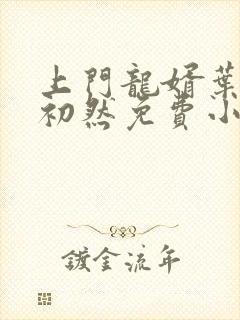 上門龍婿葉
初然免費小
鍍金流年